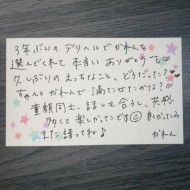 3年ぶりのデリヘルでかれんを
選んでくれて本当にありがとう
久しぶりのえっちなこと、どうだった?
ちゃんとかれんで満たせてたかな???
童顔同士、話しも合うし、共感
多くて楽しかったです
また語ってね♪
かれん